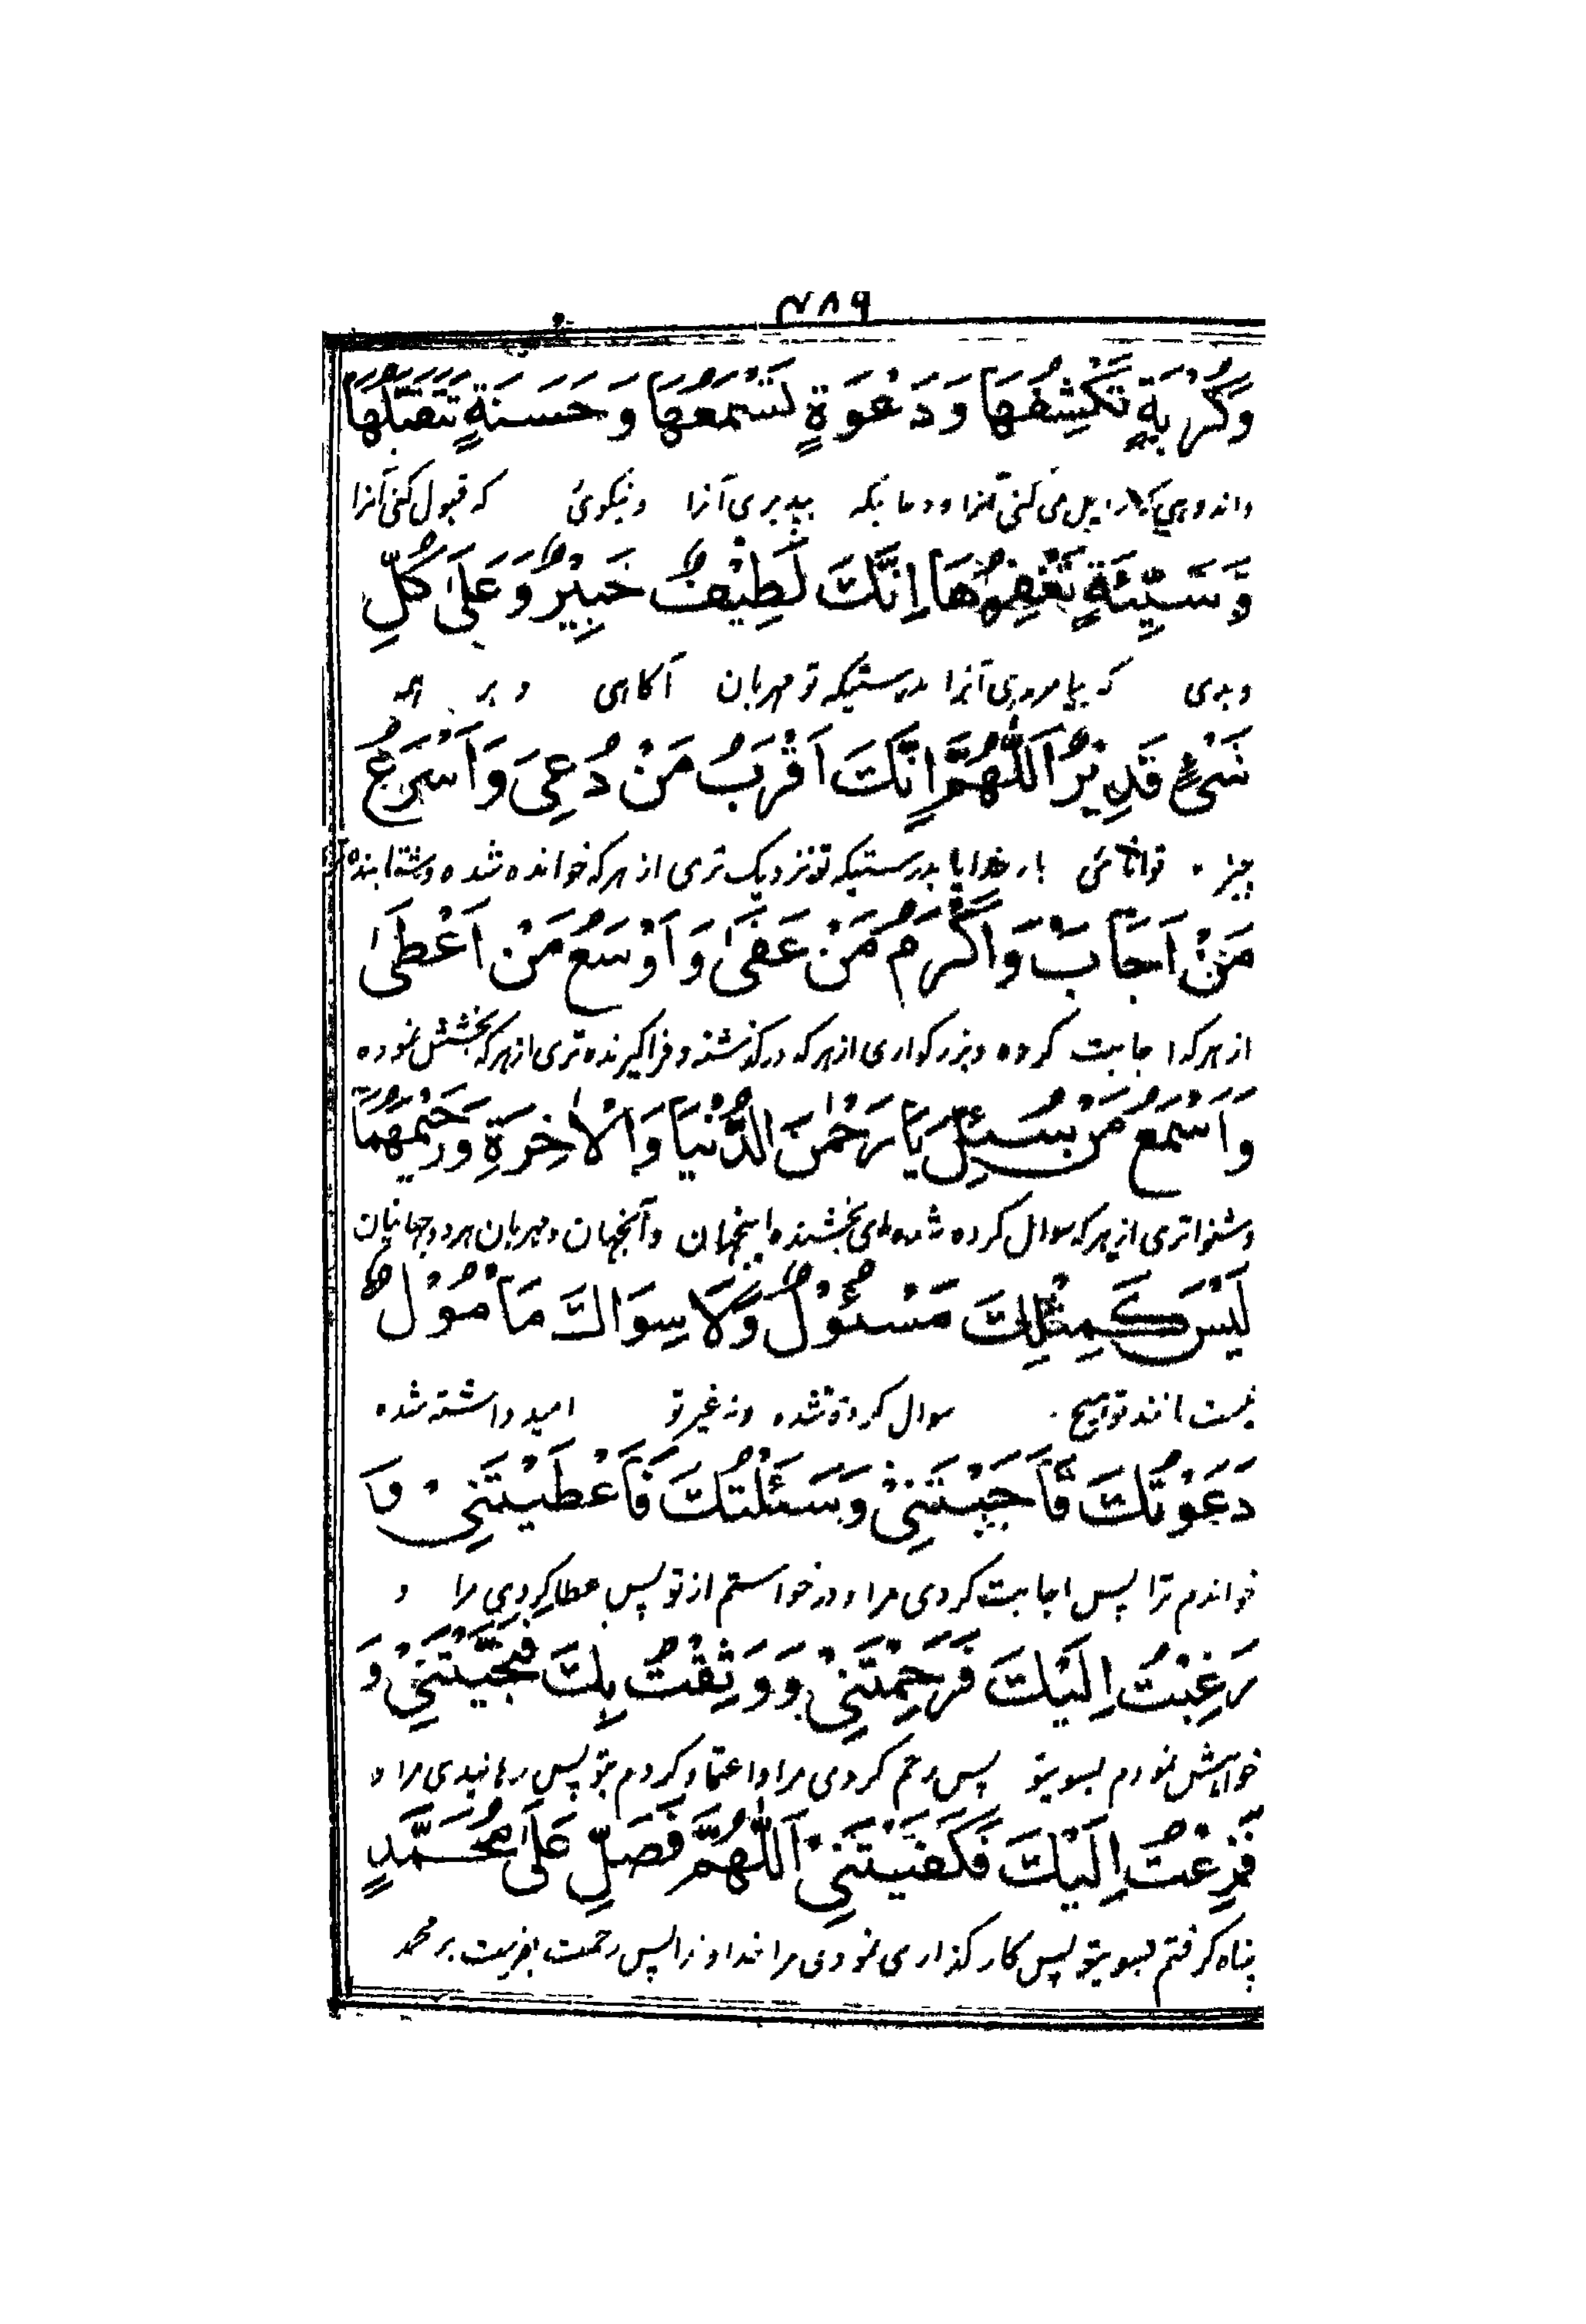 ۴۸۹
وَكُرْبَةٍ تَكْشِفُهَا وَدَعْوَةٍ تَسْمَعُهَا وَحَسَنَةٍ تَتَقَبَّلُهَا
واندوهي كه زايل می کنی آنرا ودعائیکه بپذیری آنرا ونیکوئی که قبول کنی آنرا
وَّسَيِّئَةٍ تَغْفِرُهَا اِنَّكَ لَطِيْفٌ خَبِيْرٌ وَعَلىٰ كُلِّ
وبدی که بیامرزی آنرا بدرستیکه تو مهربان آگاهی و بر همه
شَىْءٍ قَدِيْرٌ اَللّٰهُمَّ اِنَّكَ اَقْرَبُ مَنْ دُعِىَ وَاَسْرَعُ
چیز توانائی بار خدایا بدرستیکه تو نزدیک تری از هرکه خوانده شده وشتابنده
مَنْ اَجَابَ وَاَكْرَمُ مَنْ عَفىٰ وَاَوْسَعُ مَنْ اَعْطىٰ
از هرکه اجابت کرده وبزرگواری از هرکه درگذشته وفراگیرنده تری از هرکه بخشش نموده
وَاَسْمَعُ مَنْ سُئِلَ يَا رَحْمٰنَ الدُّنْيَا وَالْاٰخِرَةِ وَرَحِيْمَهُمَا
وشنواتری از هرکه سوال کرده شده ای بخشنده اینجهان وآنجهان ومهربان هردوجهانیان
لَيْسَ كَمِثْلِكَ مَسْئُوْلٌ وَّلَا سِوَاكَ مَامُوْلٌ
نیست مانند تو هیچ سوال کرده شده ونه غیر تو امید داشته شده
دَعَوْتُكَ فَاَجَبْتَنِىْ وَسَئَلْتُكَ فَاَعْطَيْتَنِىْ وَ
خواندم ترا پس اجابت کردی مرا ودرخواستم از تو پس عطا کردی مرا و
رَغِبْتُ اِلَيْكَ فَرَحِمْتَنِىْ وَوَثِقْتُ بِكَ فَنَجَّيْتَنِىْ وَ
خواهش نمودم بسویتو پس رحم کردی مرا واعتماد کردم بتو پس رهانیدی مرا و
فَزِعْتُ اِلَيْكَ فَكَفَيْتَنِىْ اَللّٰهُمَّ فَصَلِّ عَلىٰ مُحَمَّدٍ
پناه گرفتم بسویتو پس کارگذاری نمودی مرا خداوندا پس رحمت بفرست بر محمد